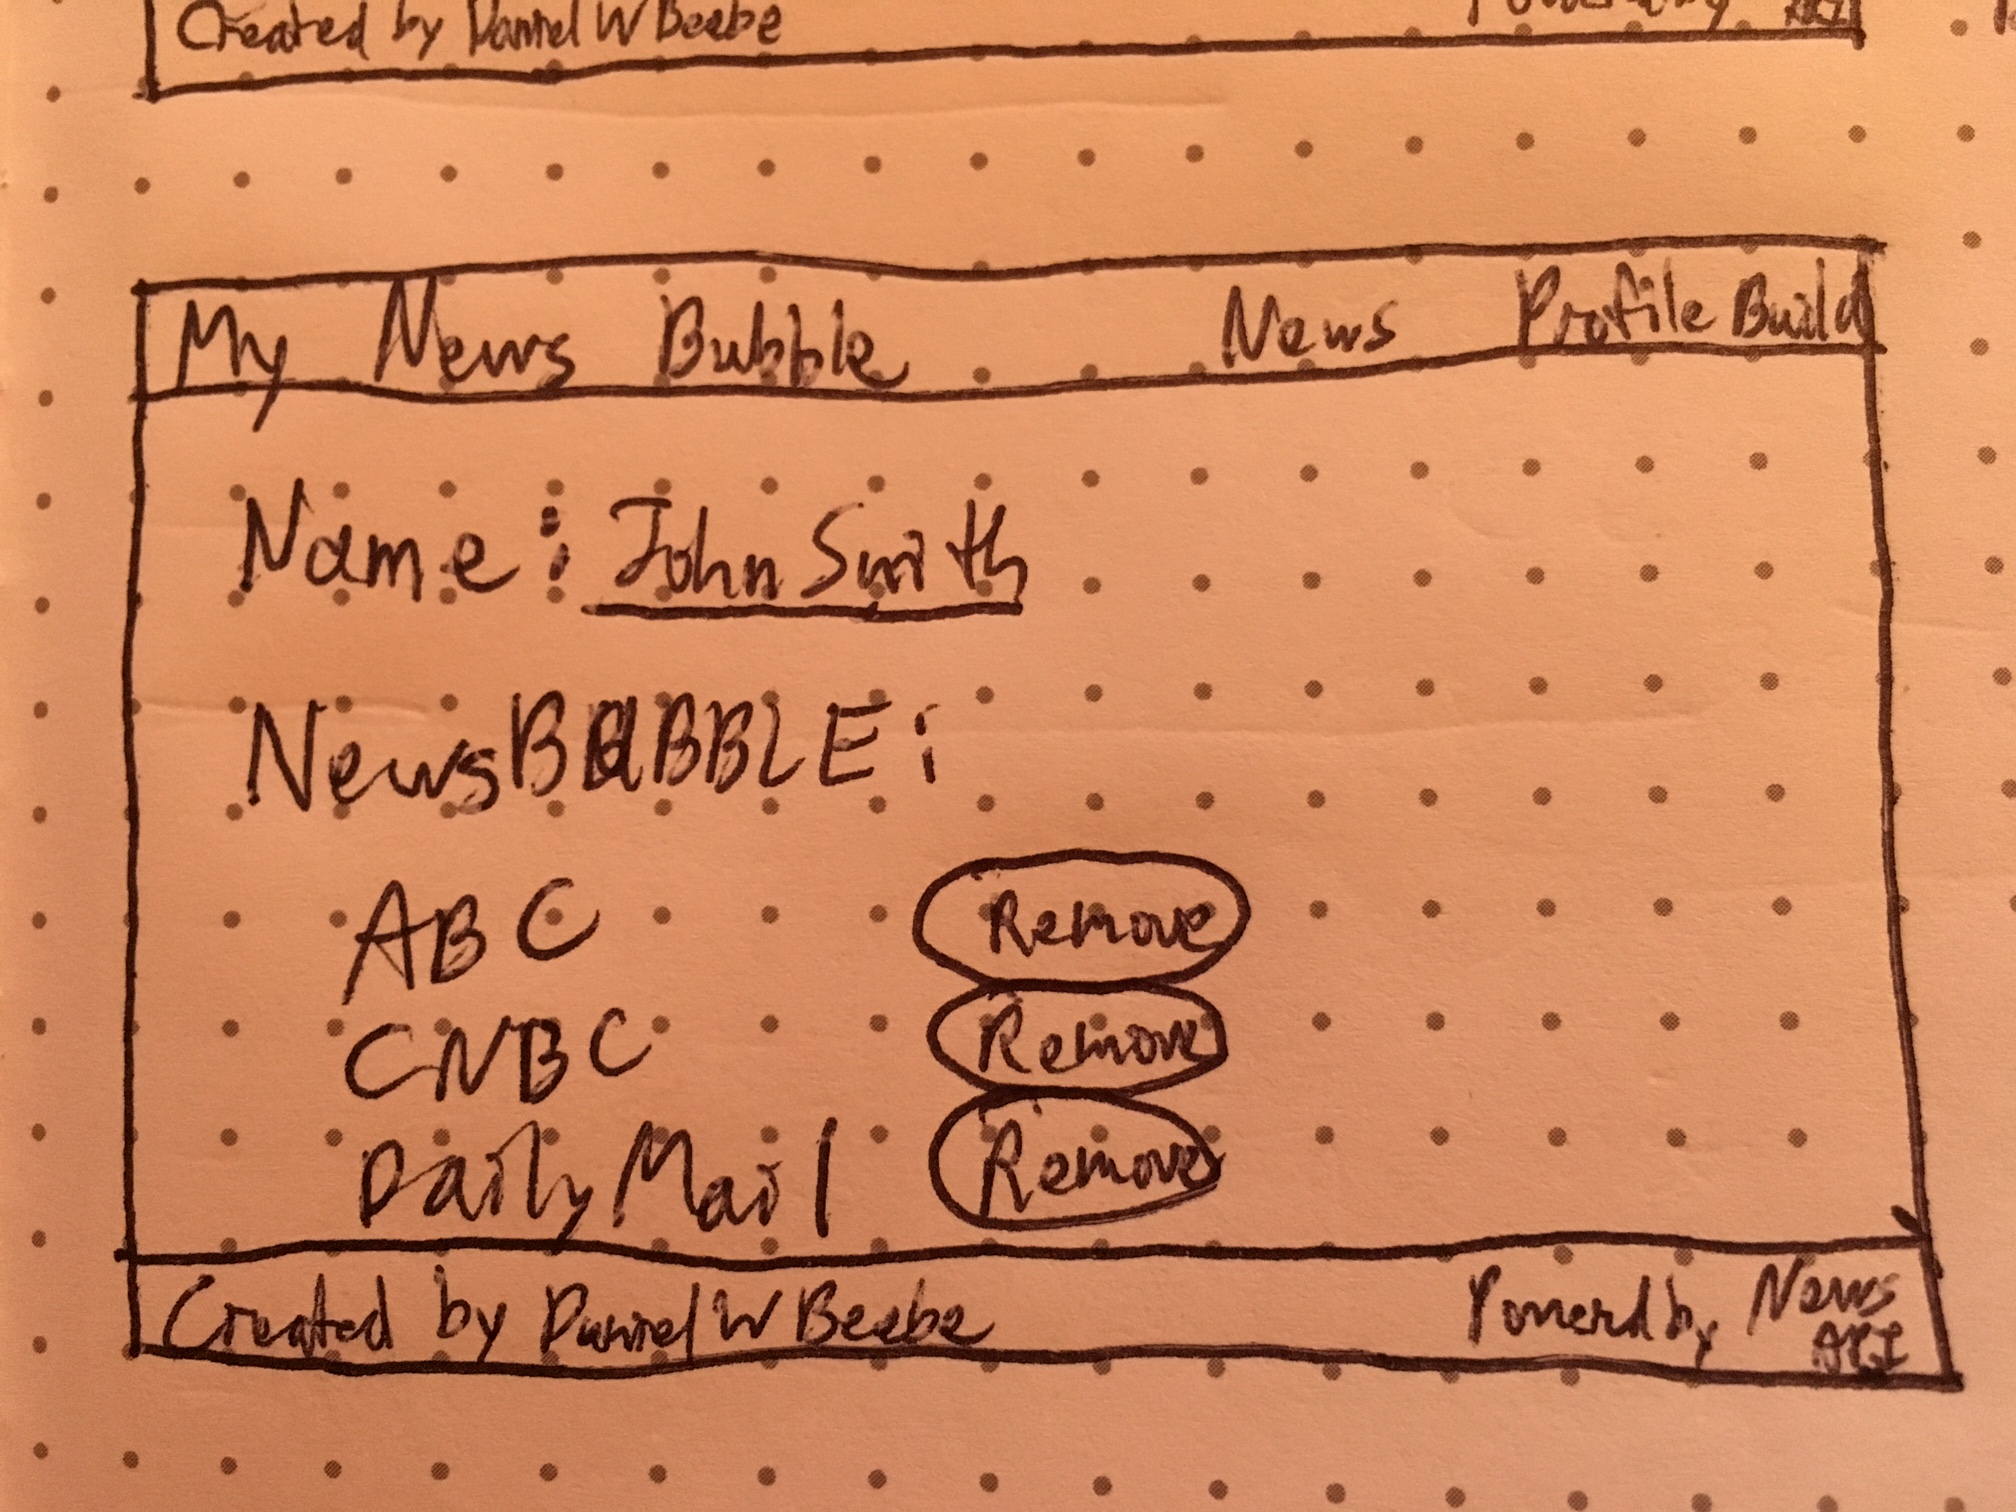 Created by Daniel W Beebe Powered by API
My News Bubble News Profile Build
Name: John Smith
NewsBUBBLE:
ABC Remove
CNBC Remove
Daily Mail Remove
Created by Daniel W Beebe Powerd by News
API